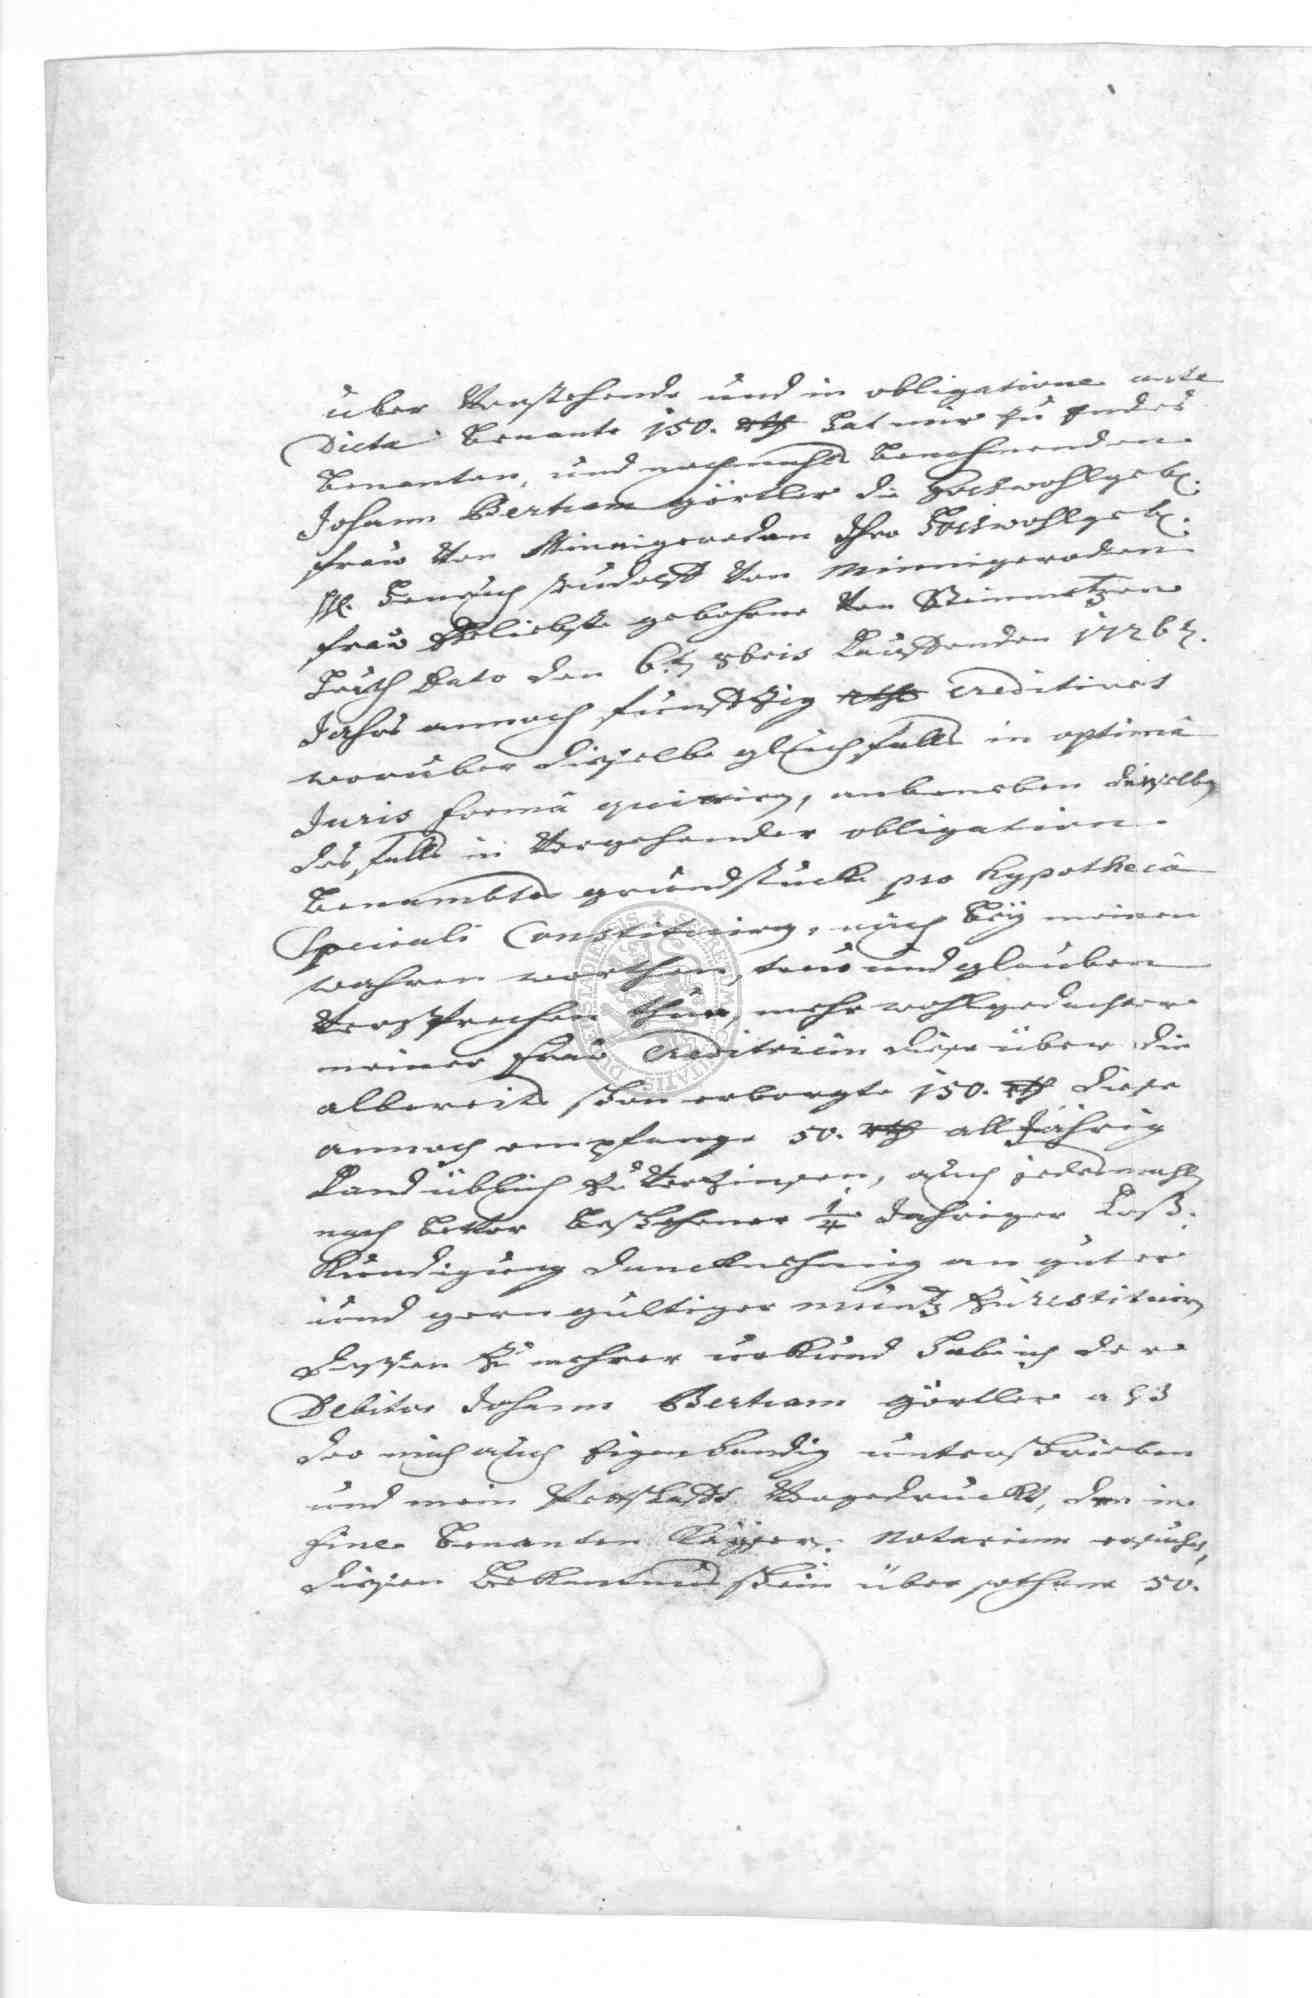 über Verstehende und in obligatione ante
Dicta benante 150. rth hat mir zu endes
benanten, und nachmahls benahmenden
Johann Bertram görtler die Hochwohlgeb.
frau Von Minnigeroden Ihro Hochwohlgeb.
H. Henrich Rudolph Von Minnigeroden
frau Geliebste gebohrne Von Steinmetzen
heuth Dato den 6.t 8bris Lauffenden 1726t.
Jahrs annoch funfftzig rth creditiret
worüber dieselbe gleichfalls in optima
Juris formâ quitire, anbeneben dieselbe
desfalls in Vorgehender obligation
benambte grundstücke pro hypothecâ
Speciali Constituire, auch bey meinen
wahren worthen, treu und glauben
Versprechen thue, mehr wohlgedachter
meiner frau Creditricin diese über die
albereits schon erborgte 150. rth diese
annoch empfange 50. rth all Jährig
Landüblich zu Verzinsen, auch jedesmahl
nach beschehener 1/4 Jahriger Loß-
kündigung dancknehmig an guter
und gern gültiger müntz zu restituiren
dessen zu mehrer urkund habe ich der
Debitor Johann Bertram görtler als
der mich auch Eigenhandig unterschrieben
und mein Pettschafft Vorgedruckt, den in
fine benanten Kayser. Notarium ersucht,
diesen bekanntnus schein über sothane 50.
SECRETUM CIVITATIS